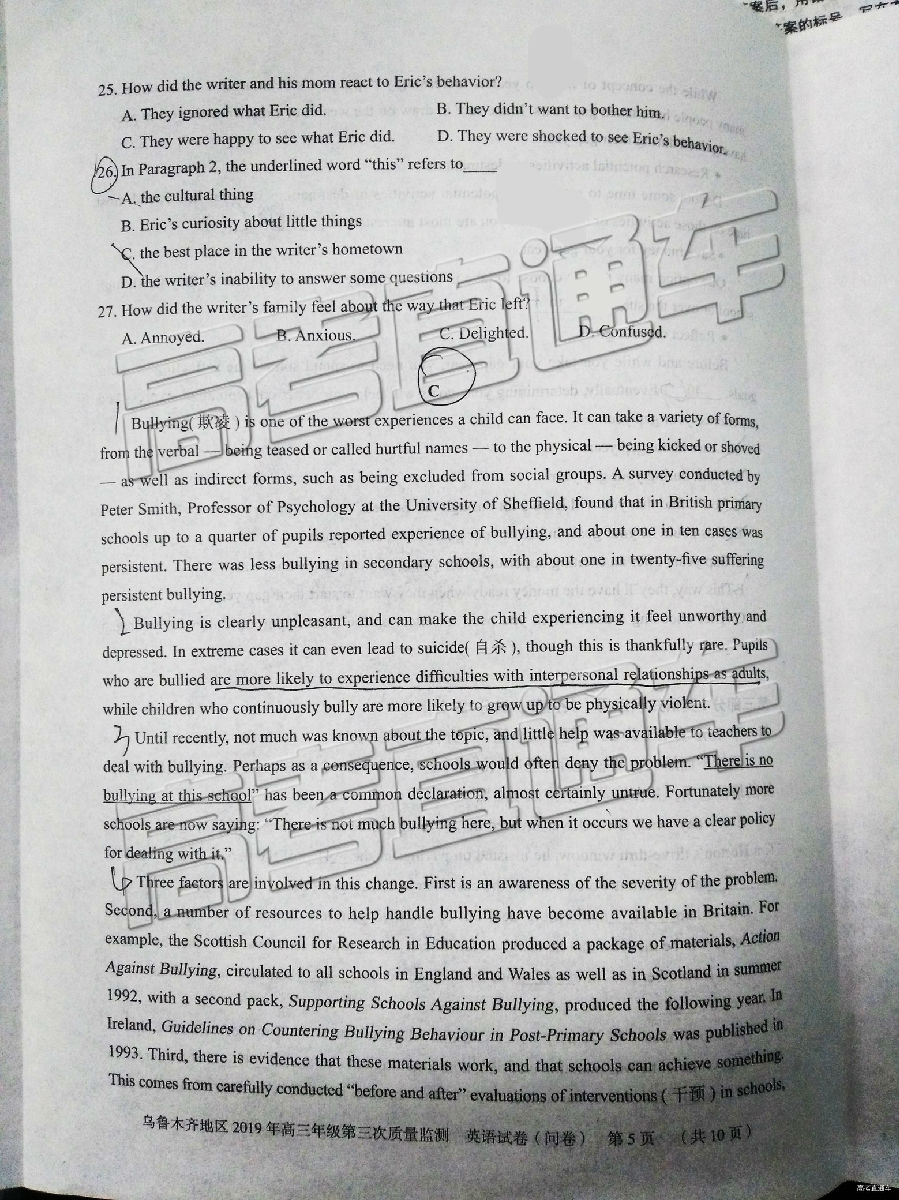 案后，用
案的标号
25. How did the writer and his mom react to Eric's behavior?
A. They ignored what Eric did. B. They didn't want to bother him.
C. They were happy to see what Eric did. D. They were shocked to see Eric's behavior.
26. In Paragraph 2, the underlined word "this" refers to____
A. the cultural thing
B. Eric's curiosity about little things
C. the best place in the writer's hometown
D. the writer's inability to answer some questions
27. How did the writer's family feel about the way that Eric left?
A. Annoyed. B. Anxious. C. Delighted. D. Confused.
C
1 Bullying(欺凌) is one of the worst experiences a child can face. It can take a variety of forms,
from the verbal — being teased or called hurtful names — to the physical — being kicked or shoved
— as well as indirect forms, such as being excluded from social groups. A survey conducted by
Peter Smith, Professor of Psychology at the University of Sheffield, found that in British primary
schools up to a quarter of pupils reported experience of bullying, and about one in ten cases was
persistent. There was less bullying in secondary schools, with about one in twenty-five suffering
persistent bullying.
2 Bullying is clearly unpleasant, and can make the child experiencing it feel unworthy and
depressed. In extreme cases it can even lead to suicide(自杀), though this is thankfully rare. Pupils
who are bullied are more likely to experience difficulties with interpersonal relationships as adults,
while children who continuously bully are more likely to grow up to be physically violent.
3 Until recently, not much was known about the topic, and little help was available to teachers to
deal with bullying. Perhaps as a consequence, schools would often deny the problem. "There is no
bullying at this school" has been a common declaration, almost certainly untrue. Fortunately more
schools are now saying: "There is not much bullying here, but when it occurs we have a clear policy
for dealing with it."
4 Three factors are involved in this change. First is an awareness of the severity of the problem.
Second, a number of resources to help handle bullying have become available in Britain. For
example, the Scottish Council for Research in Education produced a package of materials, Action
Against Bullying, circulated to all schools in England and Wales as well as in Scotland in summer
1992, with a second pack, Supporting Schools Against Bullying, produced the following year. In
Ireland, Guidelines on Countering Bullying Behaviour in Post-Primary Schools was published in
1993. Third, there is evidence that these materials work, and that schools can achieve something.
This comes from carefully conducted "before and after" evaluations of interventions(干预) in schools,
乌鲁木齐地区2019年高三年级第三次质量监测 英语试卷(问卷) 第5页 (共10页)
高考直通车
高考直通车
高考直通车